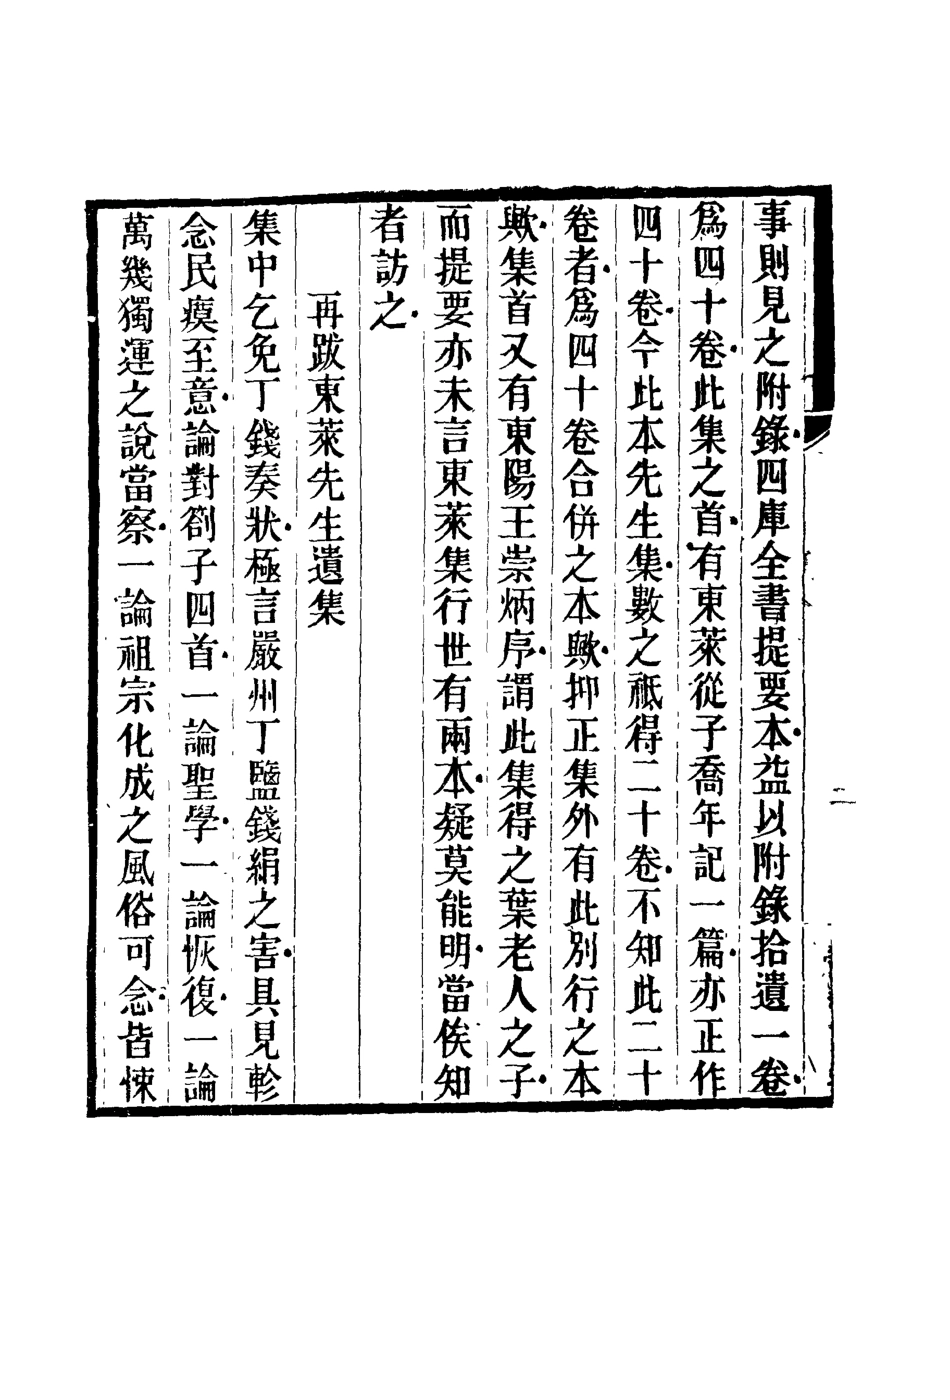 事則見之附錄四庫全書提要本葢以附錄拾遺一卷
爲四十卷此集之首有東萊從子喬年記一篇亦正作
四十卷今此本先生集數之祗得二十卷不知此二十
卷者爲四十卷合併之本歟抑正集外有此別行之本
歟集首又有東陽王崇炳序謂此集得之葉老人之子
而提要亦未言東萊集行世有兩本疑莫能明當俟知
者訪之
再跋東萊先生遺集
集中乞免丁錢奏狀極言嚴州丁鹽錢絹之害具見軫
念民瘼至意論對劄子四首一論聖學一論恢復一論
萬幾獨運之說當察一論祖宗化成之風俗可念皆悚
二